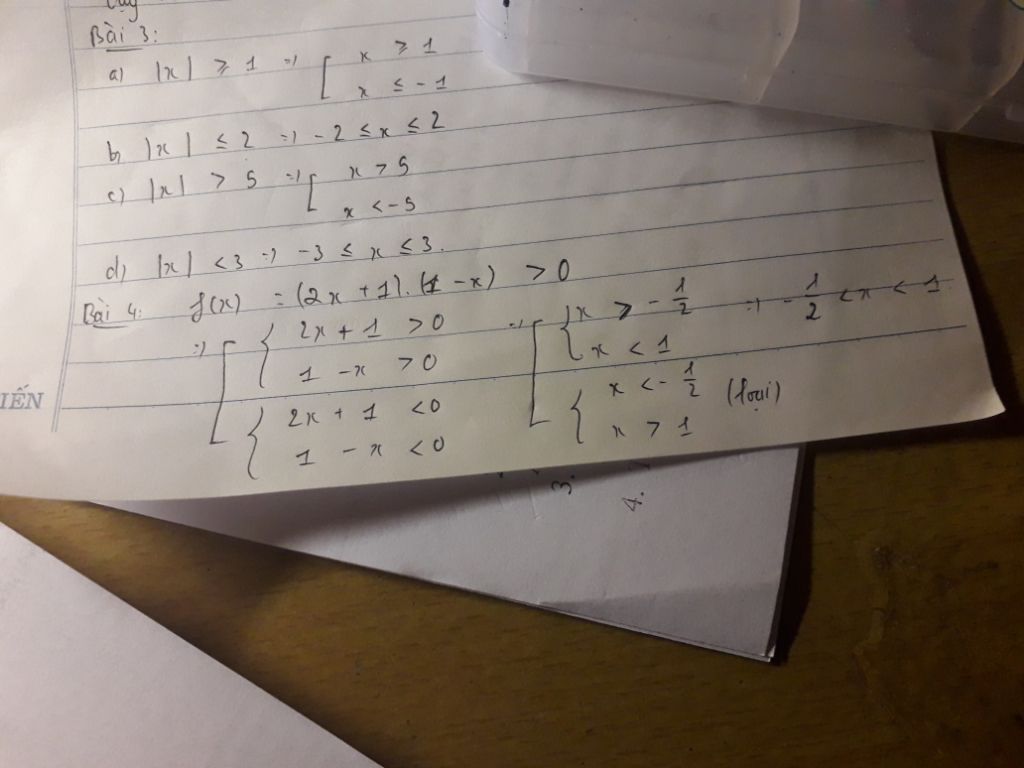 Bài 3:
a) |x| ⩾ 1 => [ x ⩾ 1
x ≤ -1
b) |x| ≤ 2 => -2 ≤ x ≤ 2
c) |x| > 5 => [ x > 5
x < -5
d) |x| < 3 => -3 ≤ x ≤ 3.
Bài 4: f(x) = (2x + 1).(1 - x) > 0
=> [ { 2x + 1 > 0 => [ { x > -1/2 => -1/2 < x < 1
1 - x > 0 x < 1
{ 2x + 1 < 0 { x < -1/2 (loại)
1 - x < 0 x > 1
IẾN
3.
4.